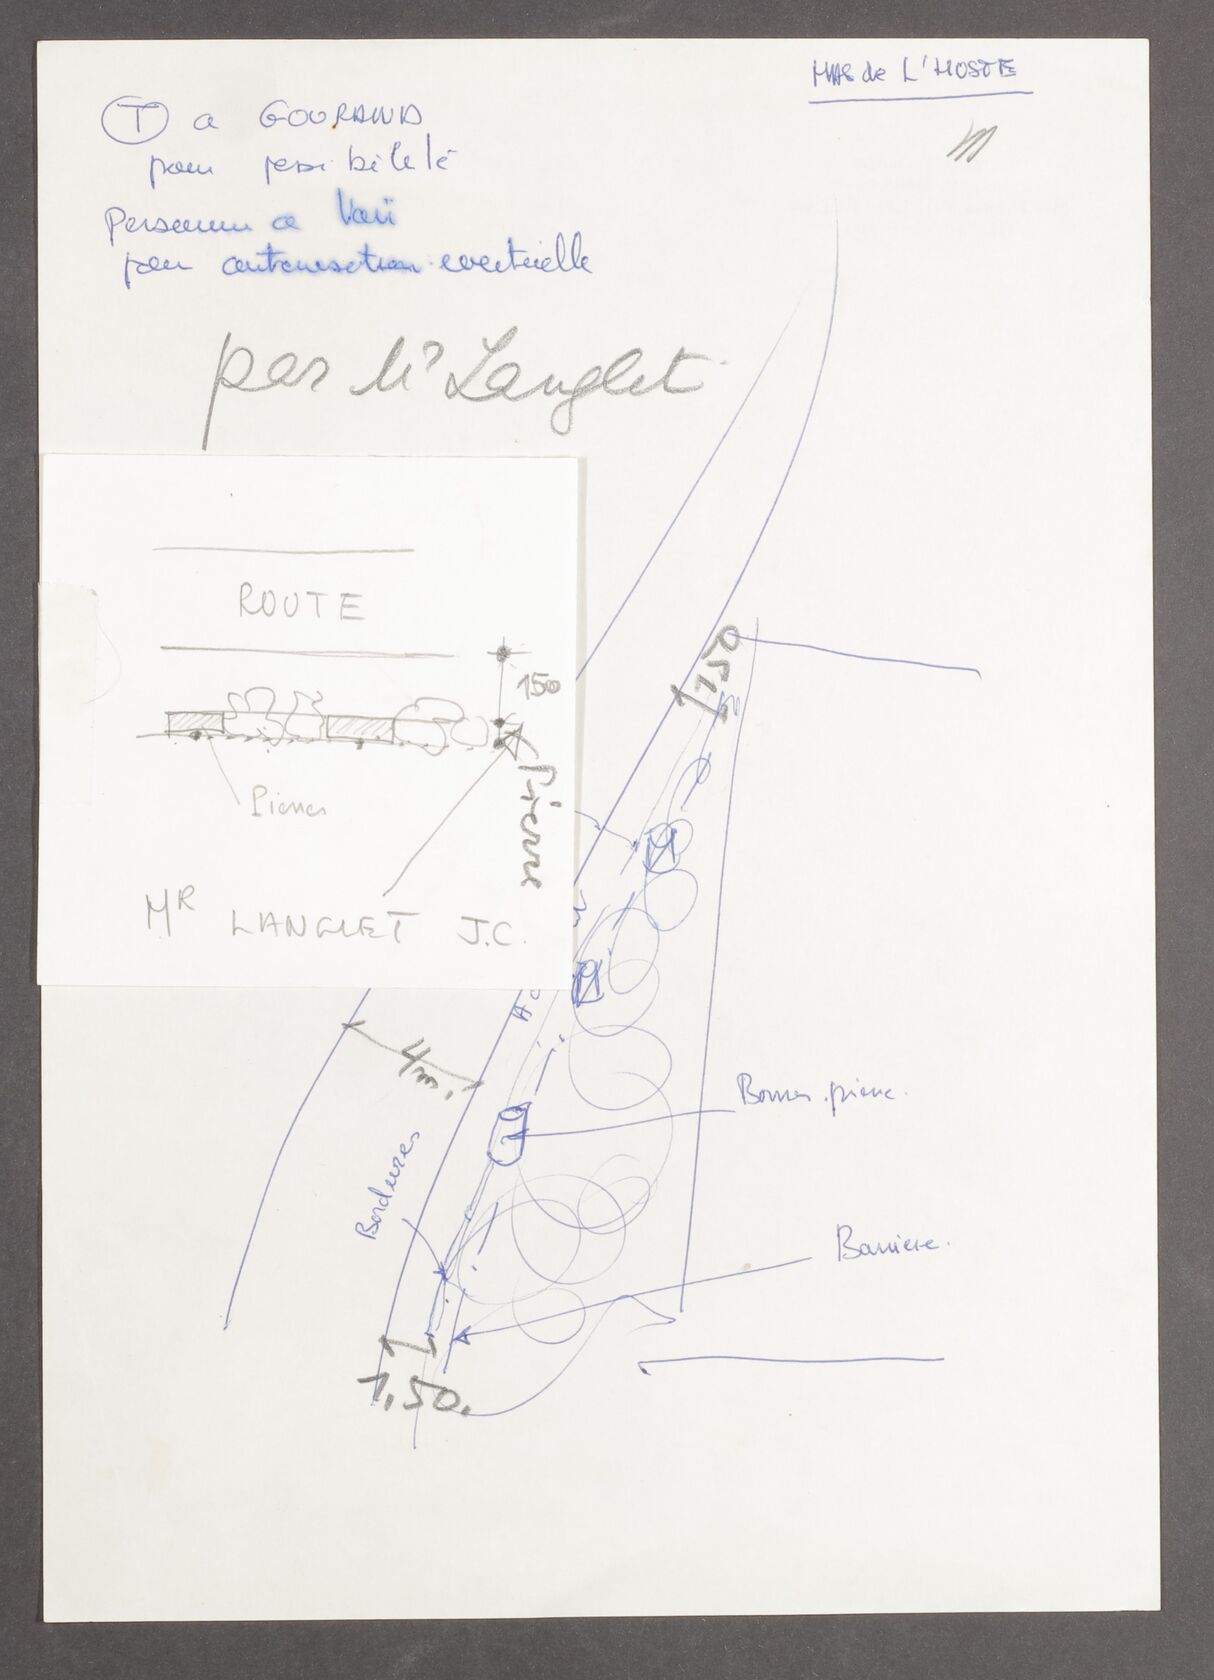 MAS de L'HOSTE
T a GOURAND
pour possibilité
a
pour autorisation eventuelle
par Mr Langlet
ROUTE
150
Pierres
Pierre
MR LANGLET J.C.
150
4m.
Bordures
Bornes pierre.
Barriere.
1,50.